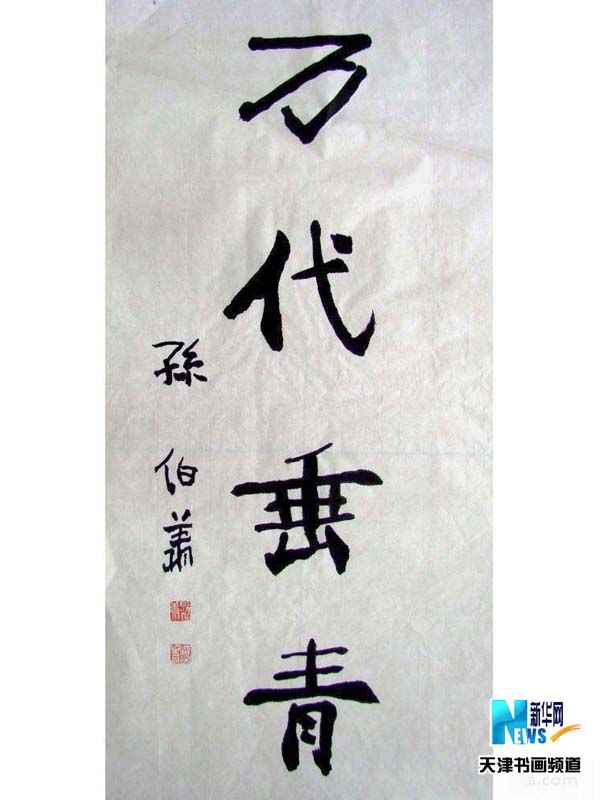 万代垂青
孫伯翥
新华网
NEWS
天津书画频道